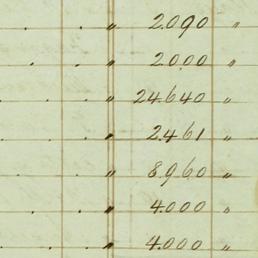 " 2.090 "
. . " 20.00 "
. . " 24.640 "
. . " 2.461 "
. . " 8.960 "
. . " 4.000 "
. . " 4.000 "